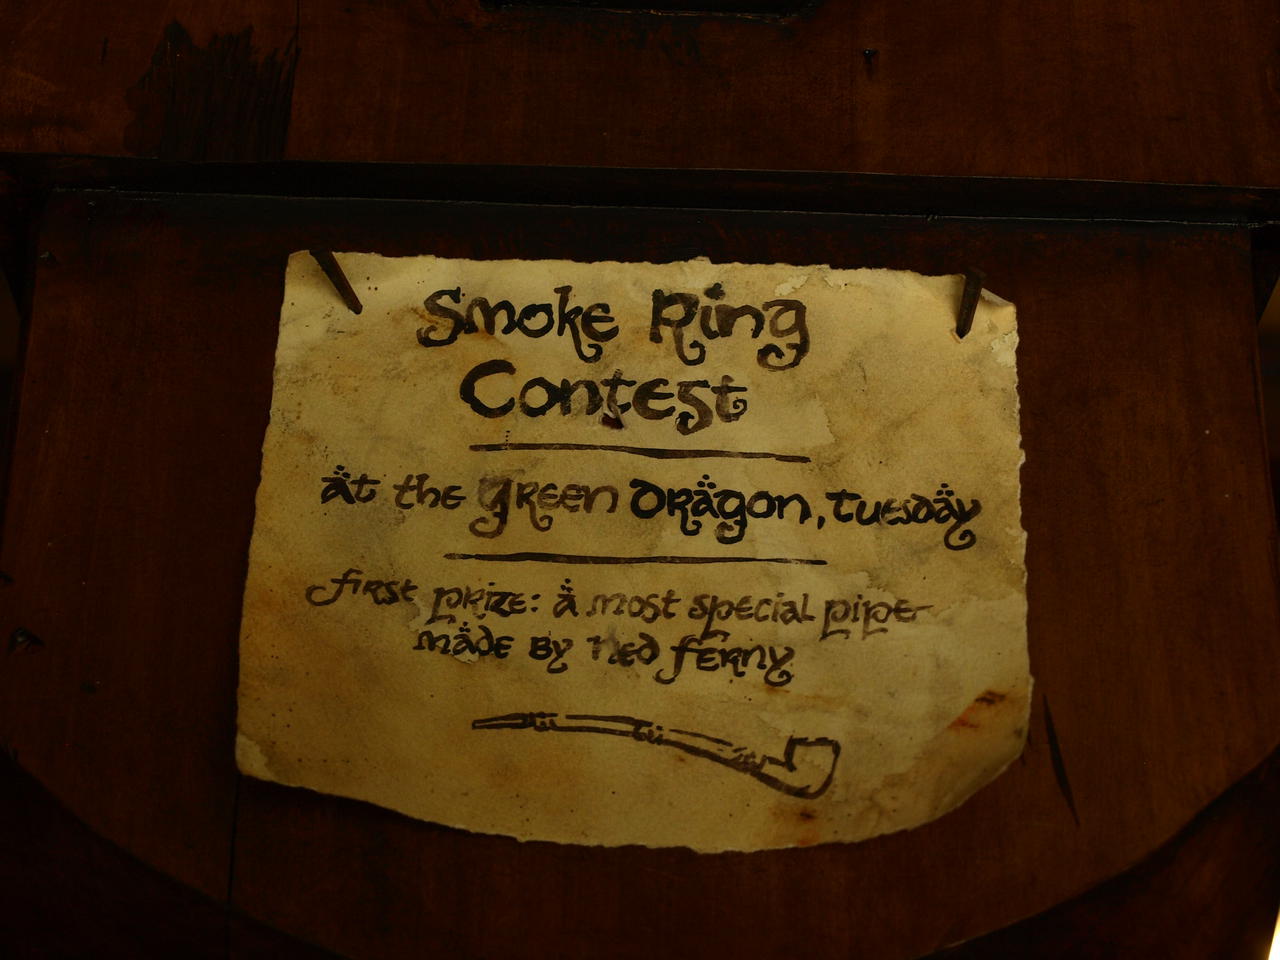 Smoke Ring
Contest
at the Green Dragon, Tuesday
first prize: a most special pipe
made by Ned Ferny